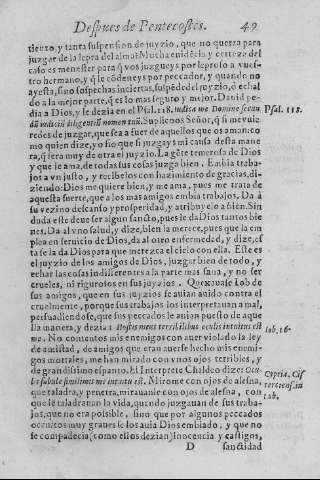 Despues de Pentecostes. 49
tiento, y tanta suspension de juyzio, que no quetra para
juzgar de la lepra del alma? Mucha euidẽcia y certeza del
caso es menester para q̃ vos juzgueys por leproso a vues-
tro hermano, y q̃ le cõdeneys por peccador, y quando no
ay esta, sino sospechas inciertas, suspẽded el juyzio, ò echal
do a la mejor parte, q̃ es lo mas seguro y mejor. Dauid pe-
dia a Dios, y le dezia en el Psal. 118. iudica me Domine secun
dũ iudiciũ diligentiũ nomen tuũ. Suplicoos Señor, q̃ si me vuie
redes de juzgar, que sea a fuer de aquellos que os aman: co
mo quien dize, yo fio que si juzgays mi causa desta mane
ra, q̃ sera muy de otra el juyzio. La gẽte temerosa de Dios
y que le ama, de todas sus cosas juzga bien. Embia traba-
jos a vn justo, y recibelos con hazimiento de gracias, di-
ziendo: Dios me quiere bien, y me ama, pues me trata de
aquesta suerte, que a los mas amigos embia trabajos. Da á
su vezino descanso y prosperidad, y atribuye lo a bien. Sin
duda este deue ser algun sancto, pues le da Dios tantos bie
nes. Da al vno salud, y dize, bien la merece, pues que la em
plea en seruicio de Dios, da al otro enfermedad, y dize, es
ta se la da Dios para que merezca el cielo con ella. Este es
el juyzio de los amigos de Dios, juzgar bien de todo, y
echar las cosas indifferentes a la parte mas sana, y no ser
crueles, ni rigurosos en sus juyzios. Quexauase Iob de
sus amigos, que en sus juyzios se auian auido contra el
cruelmente, porque sus trabajos los interpretauan a mal,
persuadiendose, que sus peccados le anian puesto de aque
lla manera, y dezia: Hostis meus terribilibus oculis intuitus est
me. No contentos mis enemigos con auer violado la ley
de amistad, de amigos que eran auerse hecho mis enemi-
gos mortales, me han mirado con vnos ojos terribles, y
de grandissimo espanto. El Interprete Chaldeo dize: Ocu-
los subulæ similimis me intuitus est. Mirome con ojos de alesna,
que taladra, y penetra, mirauanle con ojos de alesna, con
que le taladrauan la vida, quando juzgauan de sus traba-
jos, que no era possible, sino que por algunos peccados
occultos muy graues se los auia Dios embiado, y que no
se compadecia (como ellos dezian) inocencia y castigos,
D sanctidad
Psal. 118.
Iob. 16.
Cypria. Cis
terciens. in
Iob.